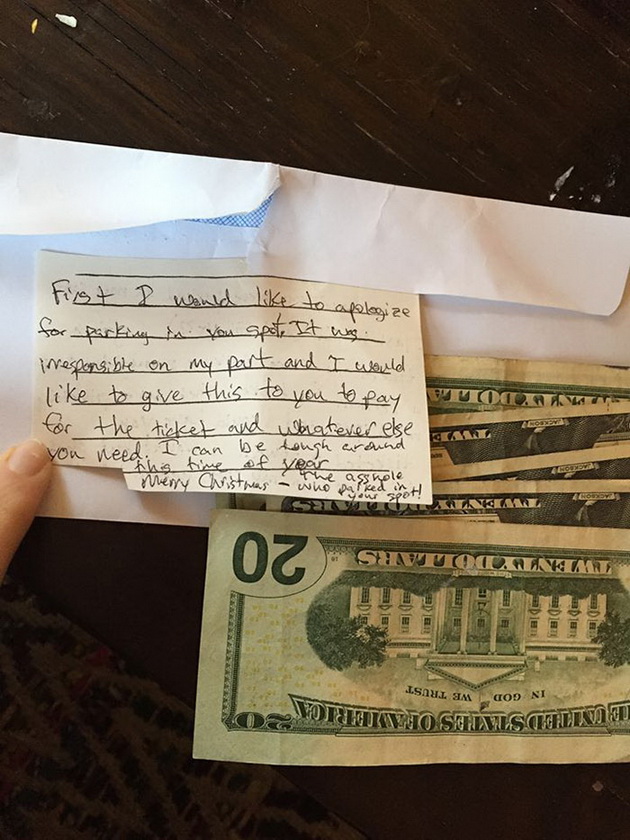 First I would like to apologize
for parking in you spot. It was
irresponsible on my part and I would
like to give this to you to pay
for the ticket and whatever else
you need. I can be tough around
this time of year
Merry Christmas - The asshole
who parked in
your spot!
TWENTY DOLLARS
JACKSON
TWENTY
JACKSON
TWENTY
JACKSON
20
TWENTY DOLLARS
IN GOD WE TRUST
THE UNITED STATES OF AMERICA
20